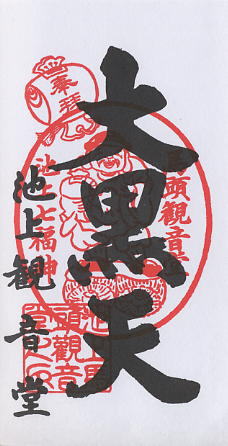 奉拝
大黒天
馬頭観音堂
池上七福神
池上観音堂